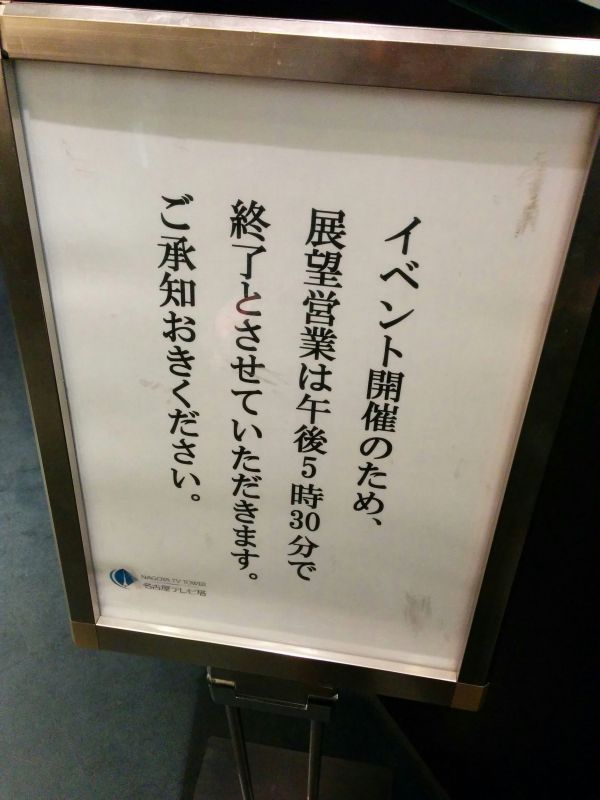 イベント開催のため、
展望営業は午後5時30分で
終了とさせていただきます。
ご承知おきください。
NAGOYA TV TOWER
名古屋テレビ塔